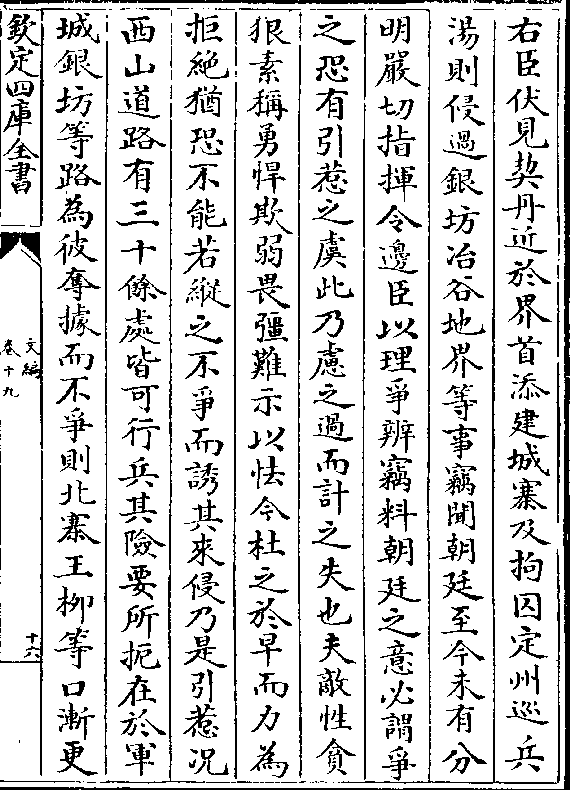 右臣伏見契丹近於界首添建城寨及拘囚定州巡兵
湯則侵過銀坊冶谷地界等事竊聞朝廷至今未有分
明嚴切指揮令邊臣以理爭辨竊料朝廷之意必謂爭
之恐有引惹之虞此乃慮之過而計之失也夫敵性貪
狠素稱勇悍欺弱畏彊難示以怯今杜之於早而力為
拒絶猶恐不能若縱之不爭而誘其來侵乃是引惹況
西山道路有三十餘處皆可行兵其險要所扼在於軍
城銀坊等路為彼奪據而不爭則北寨王栁等口漸更
欽定四庫全書
文編
卷十九
十六